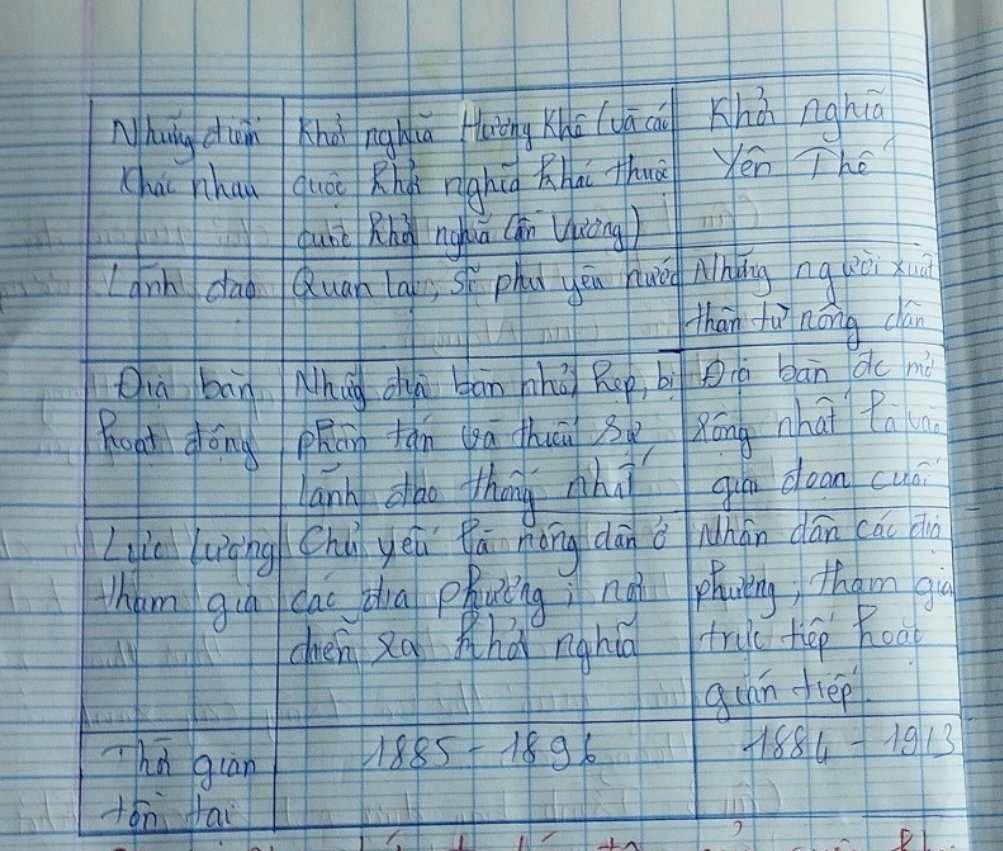 Những điểm
khác nhau
Khởi nghĩa Hương Khê (và các
cuộc khởi nghĩa khác thuộc
cuộc khởi nghĩa Cần Vương)
Khởi nghĩa
Yên Thế
Lãnh đạo
Quan lại, sĩ phu yêu nước
Những người xuất
thân từ nông dân
Địa bàn
hoạt động
Những địa bàn nhỏ hẹp, bị
phân tán và thiếu sự
lãnh đạo thống nhất
Địa bàn đc mở
rộng nhất là vào
giai đoạn cuối
Lực lượng
tham gia
Chủ yếu là nông dân ở
các địa phương; nơi
diễn ra khởi nghĩa
Nhân dân các địa
phương, tham gia
trực tiếp hoặc
gián tiếp.
Thời gian
tồn tại
1885 - 1896
1884 - 1913